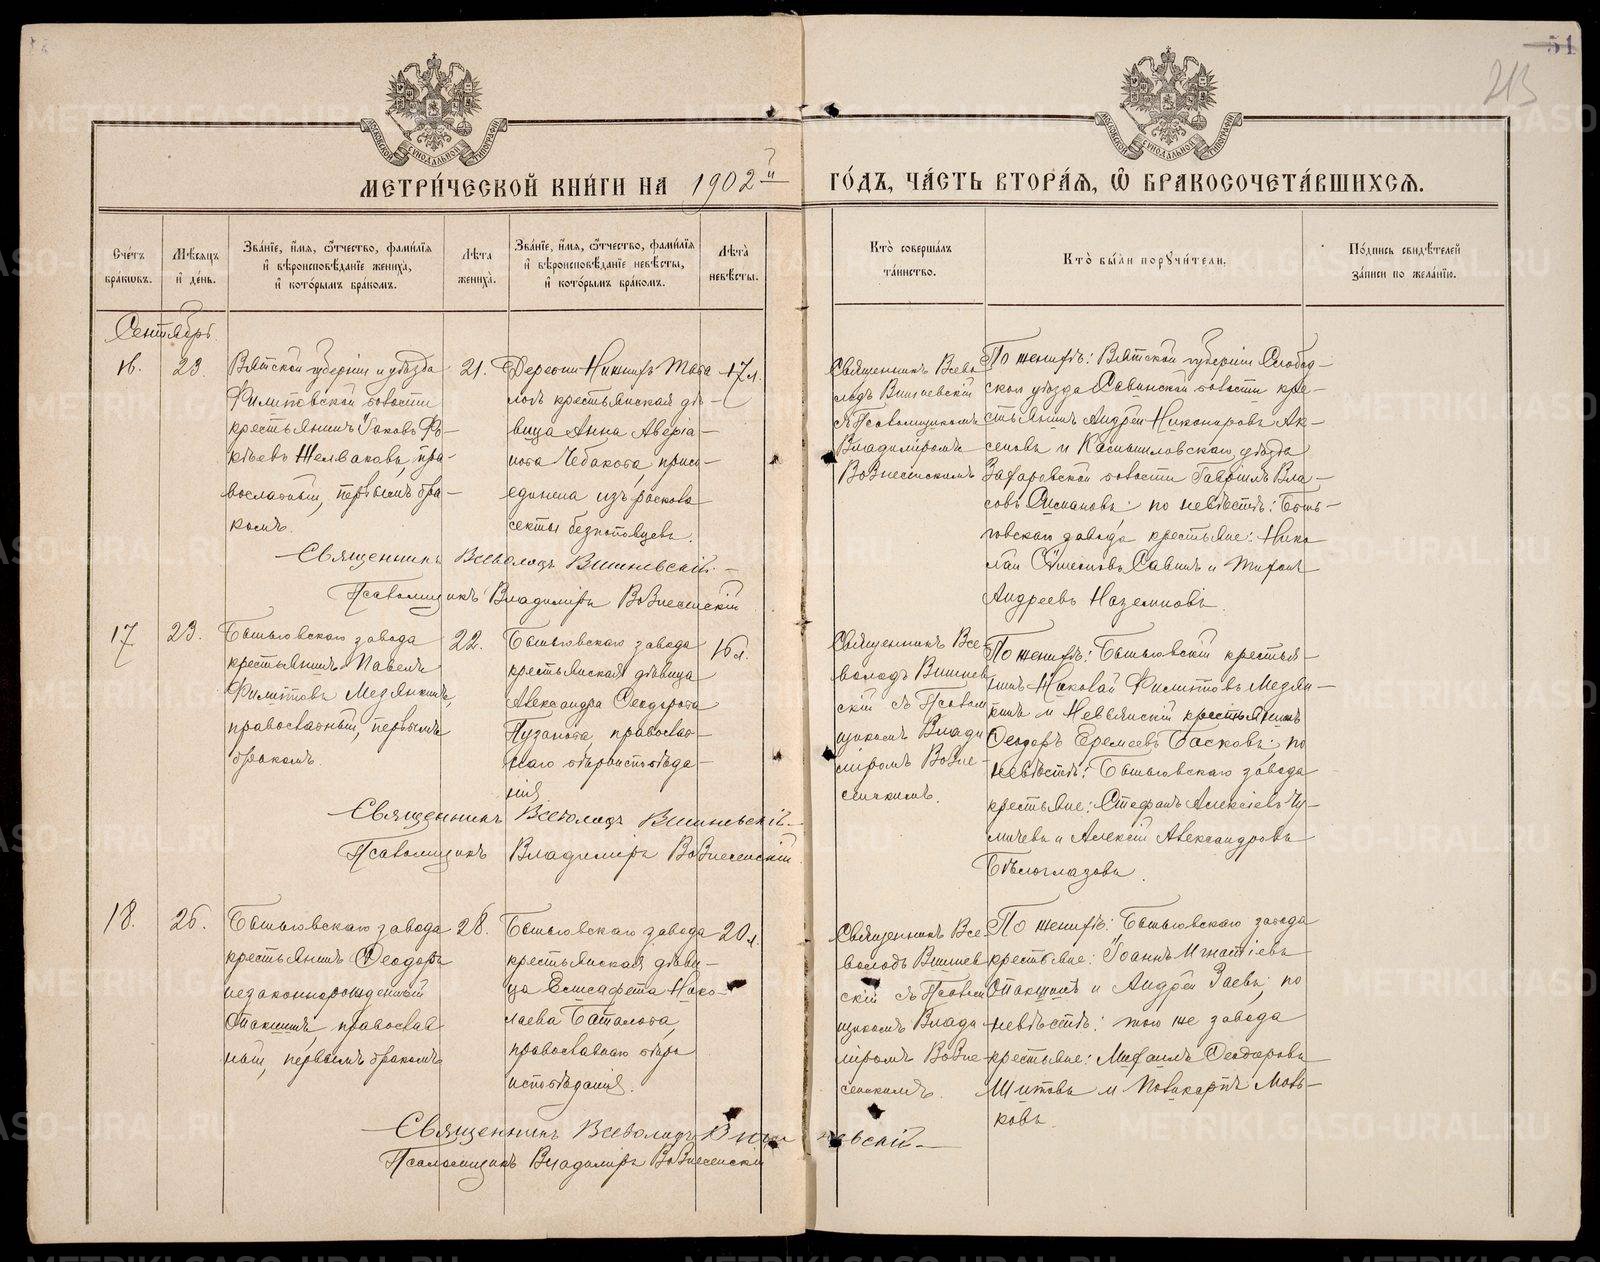 51
213
МЕТРИ́ЧЕСКОЙ КНИ́ГИ НА 1902й ГО́ДЪ, ЧА́СТЬ ВТОРА́Я, Ѿ БРАКОСОЧЕТА́ВШИХСЯ.
Сче́тъ бра́кωвъ.
Мѣ́сяцъ и҆ де́нь.
Зва́нїе, и҆́мѧ, ѻ҆́тчество, фами́лїѧ и҆ вѣроисповѣ́данїе жениха̀, и҆ кото́рымъ бра́комъ.
Лѣ́та жениха̀.
Зва́нїе, и҆́мѧ, ѻ҆́тчество, фами́лїѧ и҆ вѣроисповѣ́данїе невѣ́сты, и҆ кото́рымъ бра́комъ.
Лѣ́та невѣ́сты.
Кто̀ соверша́лъ та́инство.
Кто̀ бы́ли порꙋчи́тели.
По́дпись свидѣ́телей за́писи по жела́нїю.
Сентябрь
16.
23.
Вятской губерніи и уѣзда
Филиповской волости
крестьянинъ Іаковъ
Желваковъ, пра-
вославный, первымъ бра-
комъ.
21.
Деревни Нижнихъ Тага
крестьянская дѣ-
вица Анна Аверіа-
нова Чебакова, присо-
единена изъ раскола
секты безпоповцевъ.
17 л.
Священникъ Всево
лодъ Вишневскій
съ Псаломщикомъ
Владиміромъ
Вознесенскимъ
По женихѣ: Вятской губерніи Слобод-
скаго уѣзда Савинской волости кре-
стьянинъ Андрей Никаноровъ Ак-
сеновъ и Камышловскаго уѣзда
Захаровской волости Гавріилъ Вла-
совъ по невѣстѣ: Быньговскаго
завода крестьяне: Нико
лай Симеоновъ Савинъ и Тихонъ
Андреевъ Наземновъ.
Священникъ Всеволодъ Вишневскій.
Псаломщикъ Владиміръ Вознесенскій
17
23.
Быньговскаго завода
крестьянинъ Павелъ
Филиповъ Мезянкинъ,
православный, первымъ
бракомъ.
22.
Быньговскаго завода
крестьянская дѣвица
Александра Ѳеодорова
Пузанова, православ-
наго вѣроисповѣда-
нія
16 л.
Священникъ Все
володъ Вишнев
скій съ Псалом
щикомъ Влади
міромъ Возне-
сенскимъ.
По женихѣ: Быньговскій крестья-
нинъ Николай Филиповъ Мезян-
кинъ и Невьянскій крестьянинъ
Ѳеодоръ Еремеевъ Басковъ; по
невѣстѣ: Быньговскаго завода
крестьяне: Стефанъ Алексіевъ Чу-
мичевъ и Алексій Александровъ
Бѣлоглазовъ.
Священникъ Всеволодъ Вишневскій
Псаломщикъ Владиміръ Вознесенскій
18.
26.
Быньговскаго завода
крестьянинъ Ѳеодоръ
незаконнорожденный
Опакшинъ, православ
ный, первымъ бракомъ
28.
Быньговскаго завода
крестьянская дѣви-
ца Елисафета Нико-
лаева Баталова,
православнаго вѣро
исповѣданія.
20 л.
Священникъ Все-
володъ Вишнев
скій съ Псалом
щикомъ Влади
міромъ Возне-
сенскимъ.
По женихѣ: Быньговскаго завода
крестьяне: Іоаннъ Игнатіевъ
Опакшинъ и Андрей Заевъ; по
невѣстѣ: того же завода
крестьяне: Михаилъ Ѳеодоровъ
Шитовъ и Поликарпъ Мовь-
ковъ.
Священникъ Всеволодъ Вишневскій
Псаломщикъ Владиміръ Вознесенскій
METRIKI.GASO-URAL.RU